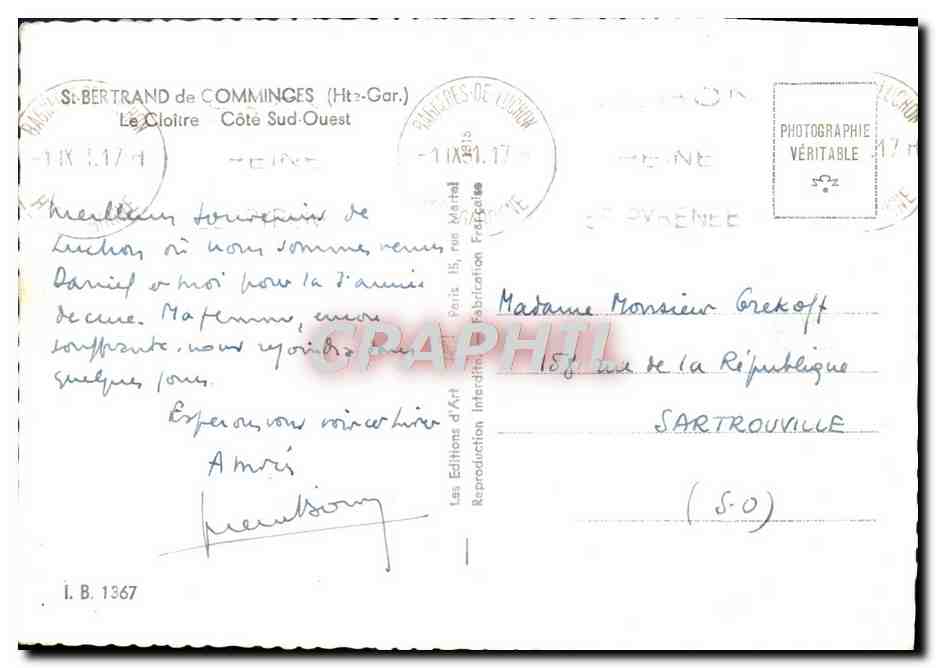 St-BERTRAND de COMMINGES (Hte-Gar.)
Le Cloître Côté Sud-Ouest
BAGNERES-DE-LUCHON
-1 IX 51. 17 H
REINE
PYRENEE
PHOTOGRAPHIE
VÉRITABLE
Meilleurs souvenirs de
Luchon où nous sommes venus
Daniel et moi pour la 3e année
de cure. Ma femme, encore
souffrante, nous rejoindra dans
quelques jours.
Espérons vous voir cet hiver
Amitiés
Les Editions d'Art Paris. 15, rue Martel
Reproduction Interdite Fabrication Française
Madame Monsieur Grekoff
158 rue de la République
SARTROUVILLE
(S-O)
I. B. 1367
CPAPHIL